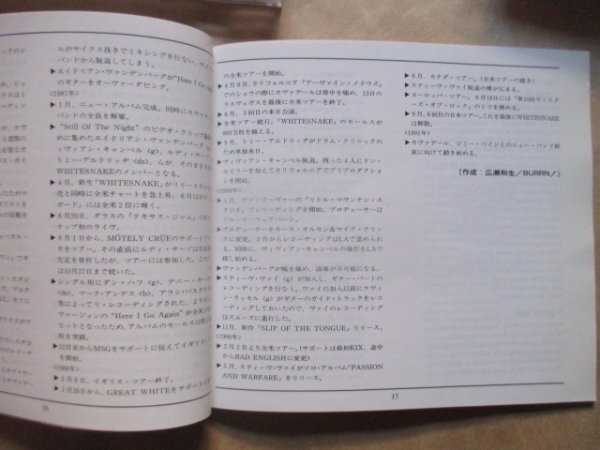 ルがサイクス抜きでミキシングを行ない、サイ
バンドから脱退してしまう。
▶エイドリアン・ヴァンデンバーグが"Here I Go
のギターをオーヴァーダビング。
(1987年)
▶1月、ニュー・アルバム完成。同時にカヴァ
バンドの全員を解雇。
▶"Still Of The Night" のビデオ・クリップ撮影
めに集めたエイドリアン・ヴァンデンバーグ
ィヴィアン・キャンベル(g)、ルディ・サー
トミー・アルドリッヂ(ds)、らが、そのまま
WHITESNAKEのメンバーとなる。
▶4月、新生「WHITESNAKE」がリリースされ
売と同時に全米チャートを急上昇、6月13日の
ボード』には全米2位に輝く。
▶6月20日、ダラスの「テキサス・ジャム」で
ナップ初のライヴ。
▶8月1日から、MÖTELY CRÜEのサポートで
カをツアー。その直前にルディ・サーゾは
左足を骨折したが、ツアーには参加。この
は10月27日まで続いた。
▶シングル用にダン・ハフ(g)、デニー・カー
(ds)、マーク・アンデス(b)、アラン・パスクァ
等によってリ・レコーディングされた、よりポ
ヴァージョンの "Here I Go Again" が全米1
ヒットとなったため、アルバムのセールスは
枚を突破。
▶12月末からMSGをサポートに従えてイギリス・
を開始。
(1988年)
▶1月8日、イギリス・ツアー終了。
▶1月26日から、GREAT WHITEをサポートに
16
の全米ツアーを開始。
▶4月9日、カリフォルニア『アーヴァイン・メドウズ』
でのショウの際にカヴァデールは背中を痛め、12日の
ラスヴェガスを最後に全米ツアーを終了。
▶6月、5回目の来日公演。
▶全米ツアー続行。「WHITESNAKE」のセールスが
800万枚を越える。
▶9月、トミー・アルドリッヂがドラム・クリニックの
ため単独来日。
▶ヴィヴィアン・キャンベル脱退。残った4人にドン・
エイリーを加えてカリフォルニアでプリプロダクション
を開始。
(1989年)
▶1月、ヴァンデンバーグの『リトル・マウンテン・ス
タジオ』でレコーディングを開始。プロデューサーは
ブルース・フェアバーン。
▶プロデューサーをキース・オルセン&マイク・クリン
クに変更。3月からレコーディングはLAで進められ
る。同時に、ヴィヴィアン・キャンベルの後任をLAで
探し始める。
▶ヴァンデンバーグが腕を痛め、演奏が不可能になる。
▶スティーヴ・ヴァイ(g)が加入し、ギター・パートの
レコーディングを行なう。ヴァイの加入以前にケヴィ
ン・ラッセル(g)がギターのガイド・トラックをレコ
ーディングしておいたので、ヴァイのレコーディング
はスムーズに進行した。
▶11月、新作「SLIP OF THE TONGUE」リリース。
(1990年)
▶2月2日より全米ツアー。(サポートは最初KIX、途中
からBAD ENGLISHに変更)
▶5月、スティーヴ・ヴァイがソロ・アルバム「PASSION
AND WARFARE」をリリース。
▶6月、カナダ・ツアー。(全米ツアーの続き)
▶スティーヴ・ヴァイ脱退の噂が立つ。
▶ヨーロッパ・ツアー。8月18日には『第10回モンスタ
ーズ・オブ・ロック』のトリを務める。
▶9月、6回目の日本ツアー。これを最後にWHITESNAKE
は解散。
(1991年)
▶カヴァデール、ジミー・ペイジとのニュー・バンド結
成に向けて動き始める。
〈作成:広瀬和生/BURRN!〉
17